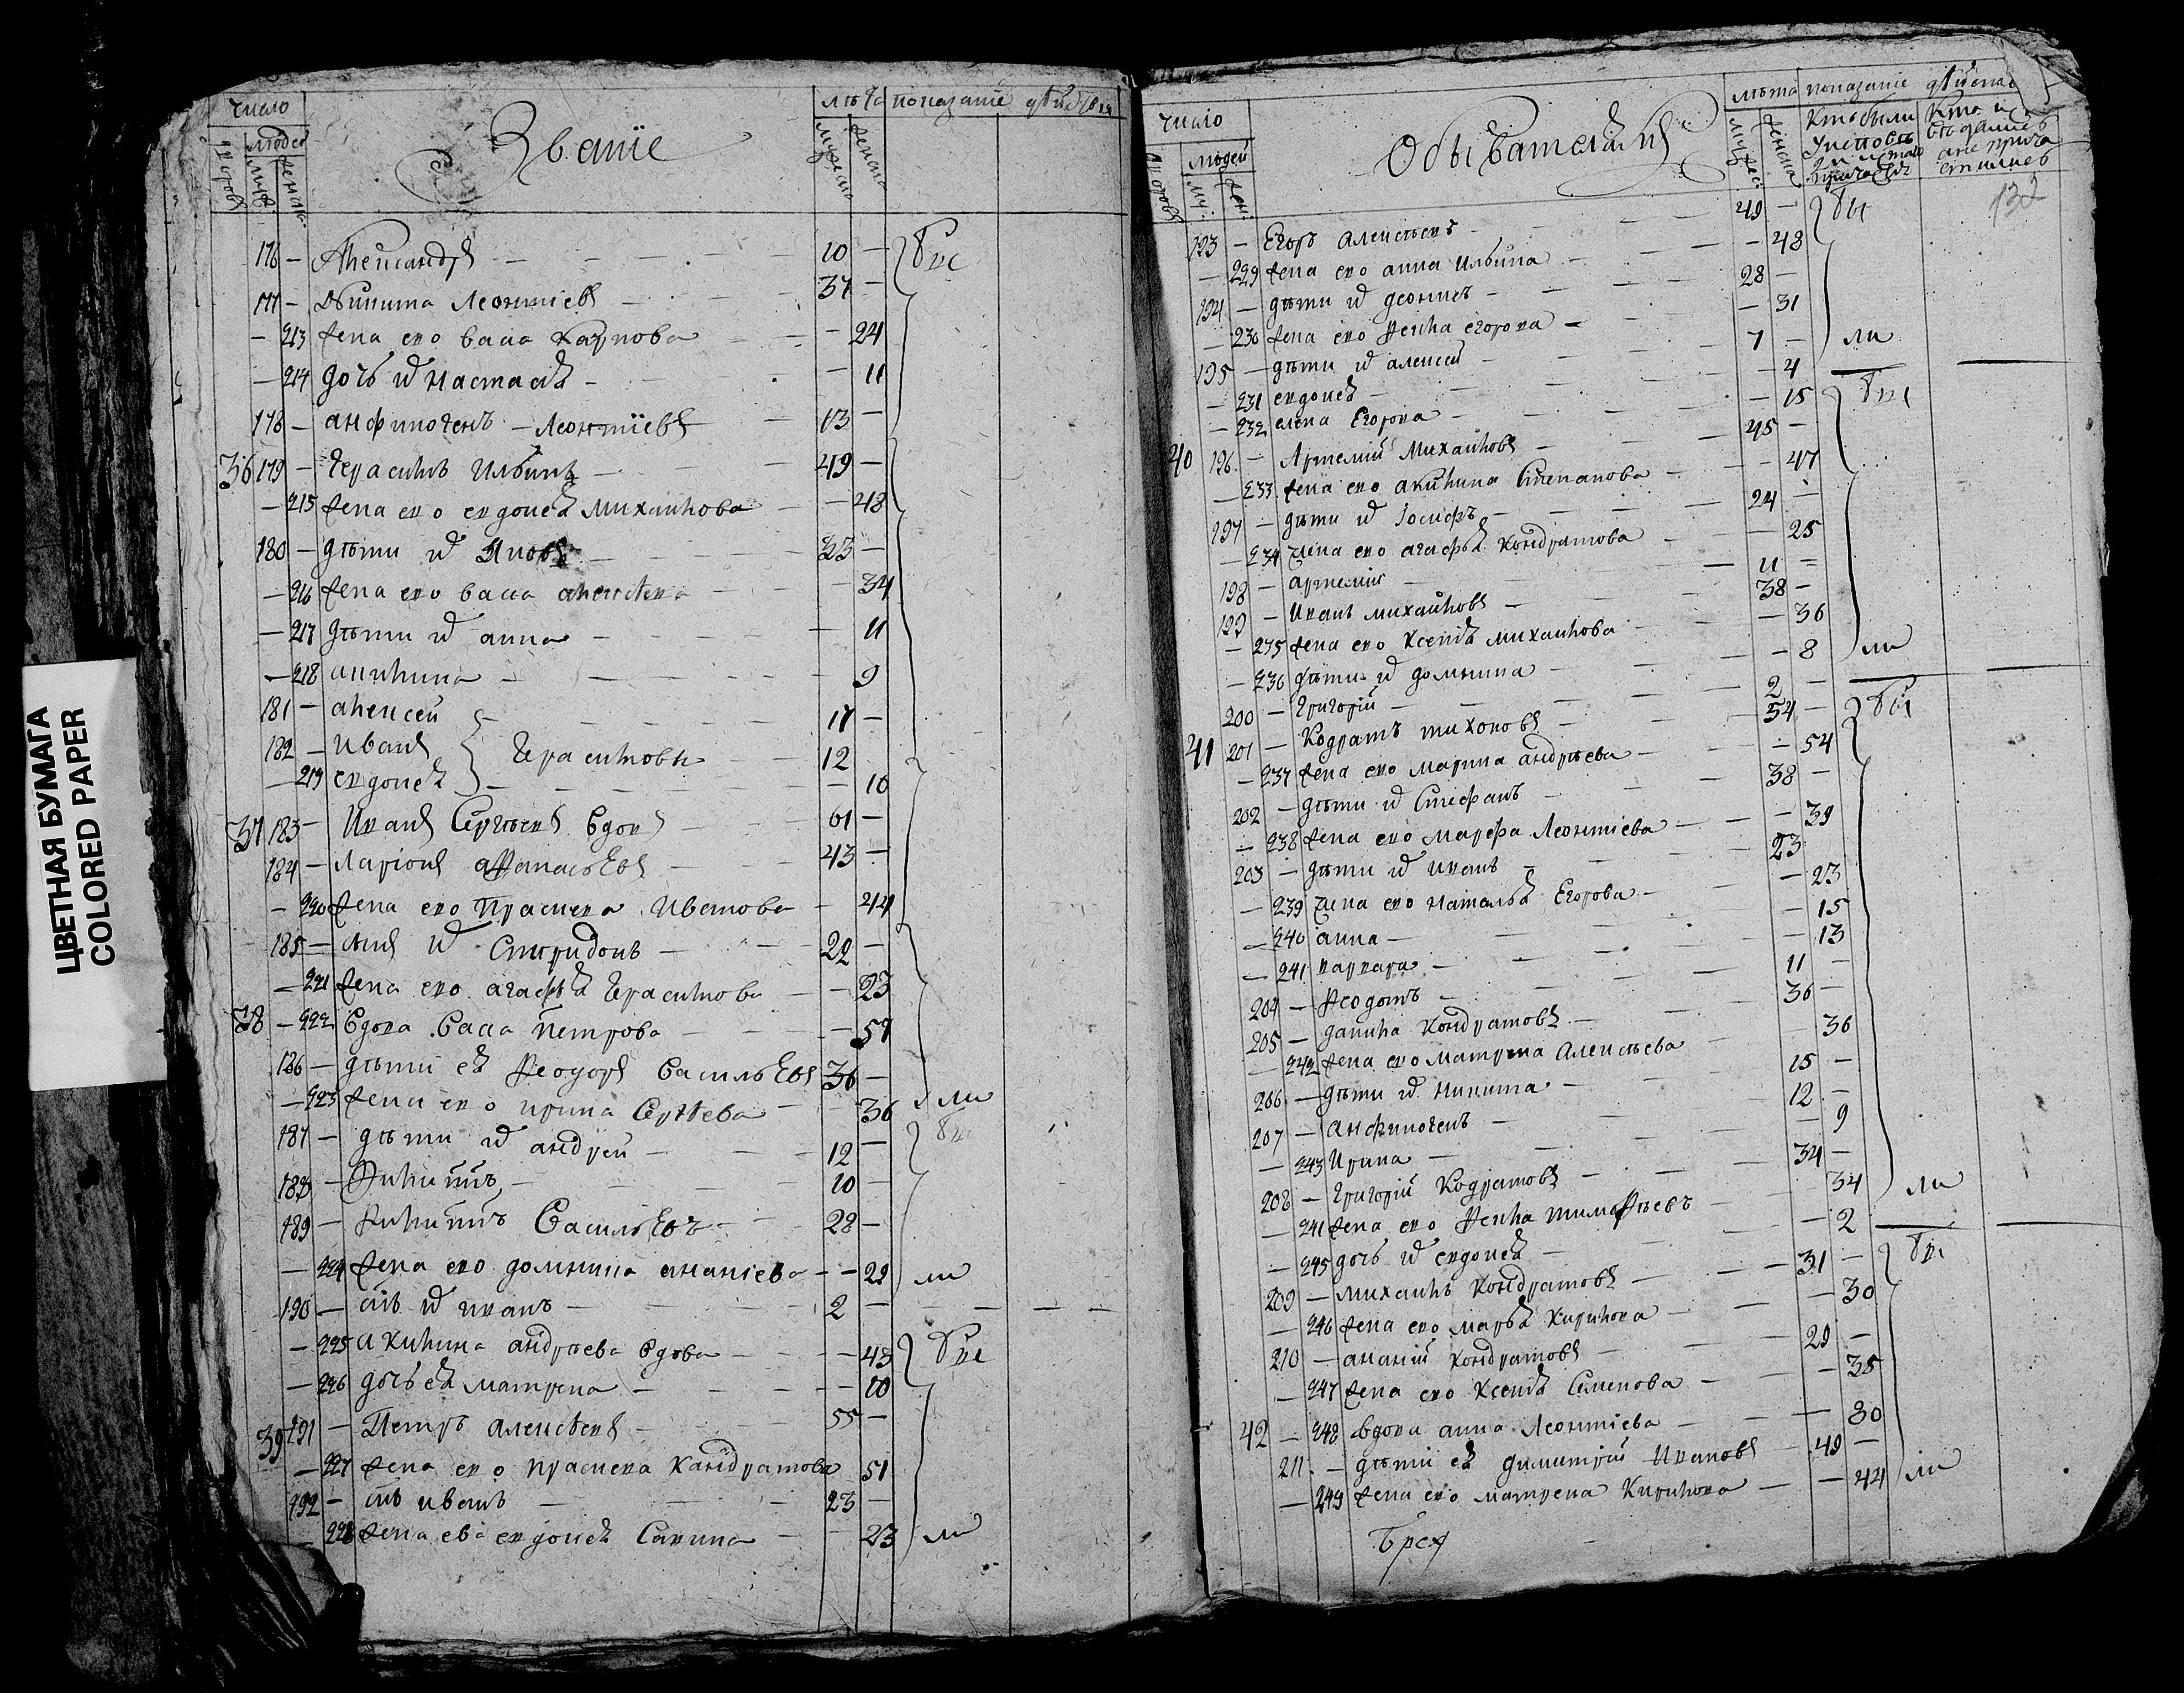 число
Званїе
лѣта показанїе дѣиства
дворовъ
людей
муж:
женска:
мужеска
женска
176 — Александръ — 10 —
177 — Никита Леонтїевъ — 37 —
— 213 жена ево васа Карпова — 24
— 214 дочь иⷯ Настасїѧ — 11
178 — анфиногенъ Леонтїевъ 13 —
36 179 — Герасимъ Ильинъ — 49 —
— 215 жена ево евдокеѧ михаилова — 48
180 — дѣти иⷯ Яковъ — 33 —
— 216 жена ево васа алексѣева — 34
— 217 дѣти иⷯ анна — 11
— 218 акилина — 9
181 — алексеи — 17 —
182 — Иванъ Герасимовы 12
— 219 евдокеѧ — 10
37 183 — Иванъ Сергѣевъ вдовъ 61 —
184 — Ларїонъ афанасьевъ 43 —
— 220 жена ево Прасковя Иванова — 44
185 — сынъ иⷯ Спиридонъ — 22 —
— 221 жена ево агафьѧ Герасимова — 23
38 — 222 вдова васа Петрова — 57
186 — дѣти еѧ Феодоръ васильевъ 36 —
— 223 жена ево ирина Сергѣева — 36 ли
187 — дѣти иⷯ андреи — 12 —
188 — Филиппъ — 10 —
189 — Филиппъ васильевъ 28 —
— 224 жена ево домника ананїева — 29 ли
190 — сынъ иⷯ иванъ — 2 —
— 225 акилина андреева вдова — 43
— 226 дочь еѧ матрена — 10
39 191 — Петръ алексѣевъ 55 —
— 227 жена ево прасковя Кандратова 51
192 — сынъ иванъ — 23 —
— 228 жена ево евдокеѧ Савина — 23 ли
число
Обывателскїй
лѣта показанїе дѣиства
дворовъ
людей
132
193 — Егоръ алексѣевъ — 49 —
— 229 жена ево анна Ильина — 48
194 — дѣти иⷯ — 28 —
— 230 жена ево Фекла егорова — 31
195 — дѣти иⷯ алексеи — 7 — ли
— 231 евдокеѧ — 4
— 232 елена Егорова — 15
40 196 — Артемїй Михайловъ — 45 —
— 233 жена ево акилина Степанова — 47
197 — дѣти иⷯ Іосифъ — 24 —
— 234 жена ево агафьѧ Кондратова — 25
198 — артемїи — 11
199 — Иванъ михайловъ — 38 —
— 235 жена ево Ксенїѧ михаилова — 36
— 236 дѣти иⷯ домника — 8 ли
200 — Григорїй — 2 —
41 201 — Кодратъ тихоновъ — 54 —
— 237 жена ево марина андрѣева — 54
202 — дѣти иⷯ Стефанъ — 38 —
— 238 жена ево марфа Леонтїева — 39
203 — дѣти иⷯ иванъ — 23
— 239 жена ево Натальѧ Егорова — 23
— 240 анна — 15
— 241 варвара — 13
204 — Феодотъ — 11 —
205 — данила Кондратовъ — 36 —
— 242 жена ево матрена алексѣева — 36
206 — дѣти иⷯ Никита — 15 —
207 — анфиногенъ — 12 —
— 243 Ирина — 9
208 — Григорїй Кодратовъ — 34 —
— 241 жена ево Фекла тимофѣевъ 34 ли
— 245 дочь иⷯ евдокеѧ — 2
209 — михаилъ Кондратовъ — 31 —
— 246 жена ево марьѧ Кирилова — 30
210 — ананїй Кондратовъ — 29 —
— 247 жена ево Ксенїѧ Семенова — 35
42 — 248 вдова анна Леонтїева — 80
211 — дѣти еѧ димитрїй Ивановъ — 49 —
— 249 жена ево матрена Кирилова — 44 ли
ЦВЕТНАЯ БУМАГА
COLORED PAPER